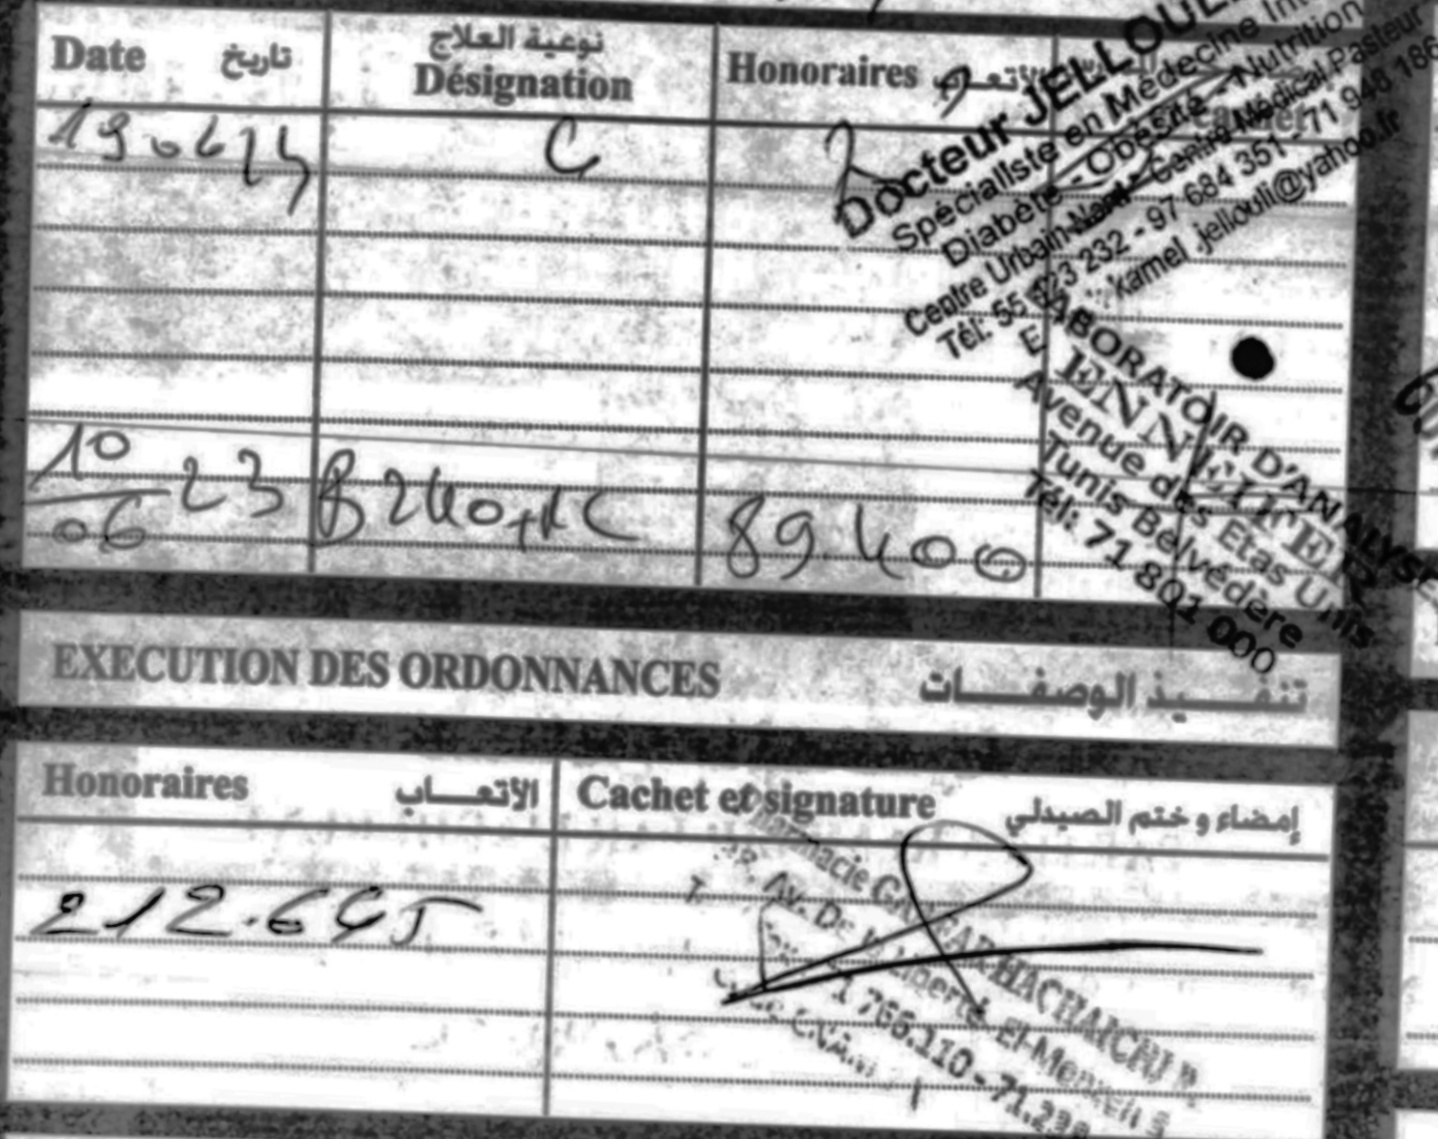 Date تاريخ
نوعية العلاج
Désignation
Honoraires
C
Docteur JELLOULI
Spécialiste en Médecine
Diabète - Obésité - Nutrition
Centre Urbain Nord - Centre Médical Pasteur
Tél: 55 323 232 - 97 684 351 - 71 948 186
kamel.jellouli@yahoo.fr
LABORATOIR D'ANALYSE
ENNEIFER
Avenue des Etas Unis
Tunis Belvédère
Tél: 71 801 000
10/06 23 B240+1C 89.400
EXECUTION DES ORDONNANCES تنفيذ الوصفات
Honoraires الأتعاب
Cachet et signature إمضاء و ختم الصيدلي
212.645
Pharmacie HACHAICHI
Av. De la Liberté El-Menzeh 5
766.110 - 71.